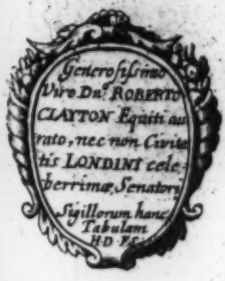 Generosissimo
Viro Dno. ROBERTO
CLAYTON Equiti au
rato, nec non Civita
tis LONDINI cele
berrimæ, Senatori
Sigillorum hanc
Tabulam
H·D·